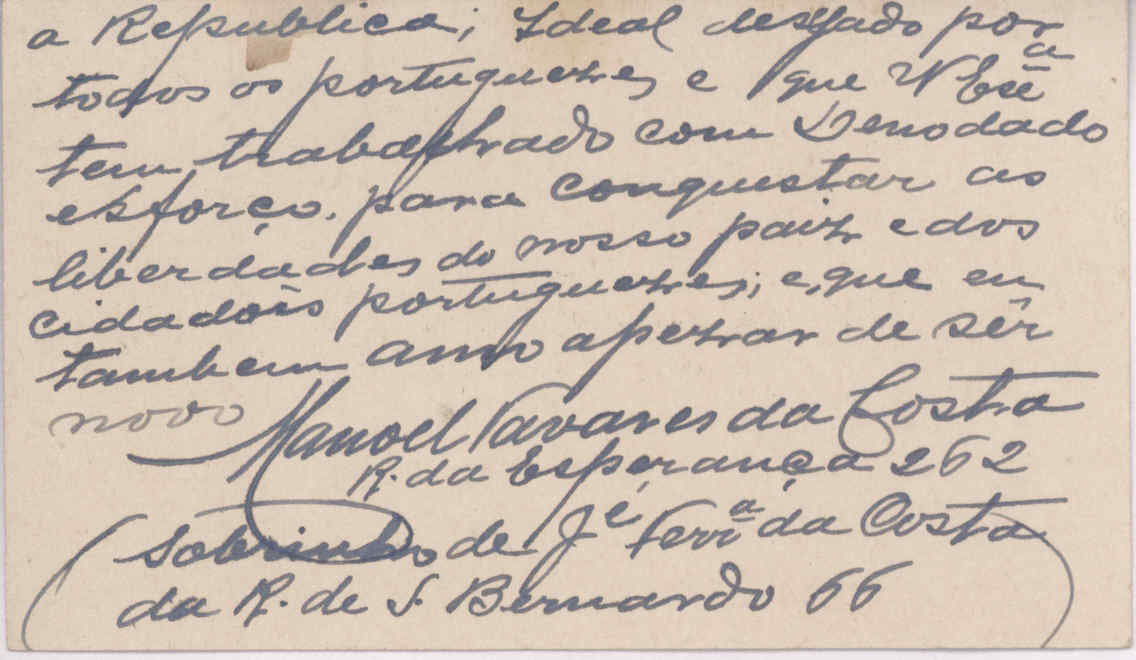 a Republica; Ideal desejado por
todos os portuguezes e que V Exª
tem trabalhrado com Denodado
esforço. para conquestar as
liberdades do nosso paiz e dos
cidadois portuguezes; e, que eu
tambem amo apezar de sêr
novo Manoel Tavares da Costa
R. da Esperança 262
(Sobrinho de Jé Ferrª da Costa
da R. de S. Bernardo 66)